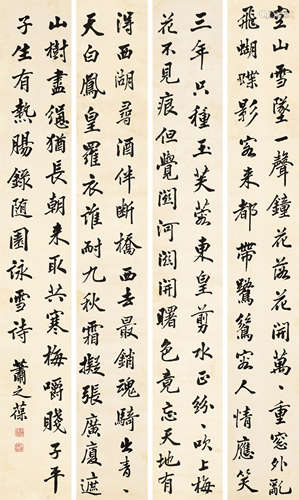 空山雪墜一聲鐘萬〻重窗外亂
飛蝴蝶影客來都帶鷺鷥容人情應笑
三年只種玉芙蓉東皇剪水正紛〻吹上梅
花不見痕但覺關河開曙色竟忘天地有
得西湖尋酒伴斷橋西去最銷魂騎出青〻
天白鳳皇羅衣誰耐九秋霜擬張廣廈遮
山樹盡猶長朝來取共寒梅嚼賤子平
子生有熱腸錄随園詠雪詩 蕭之葆